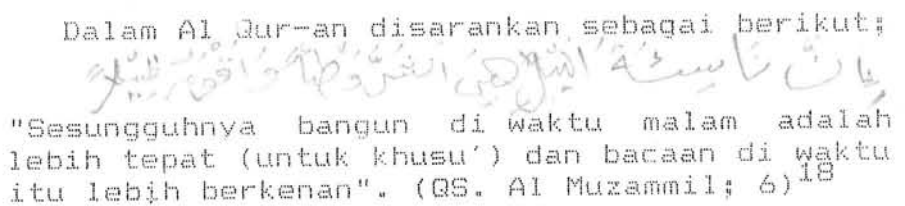 Dalam Al Qur-an disarankan sebagai berikut;
إن ناشئة الليل هي أشد وطأ وأقوم قيلا
"Sesungguhnya bangun di waktu malam adalah
lebih tepat (untuk khusu') dan bacaan di waktu
itu lebih berkenan". (QS. Al Muzammil; 6)18